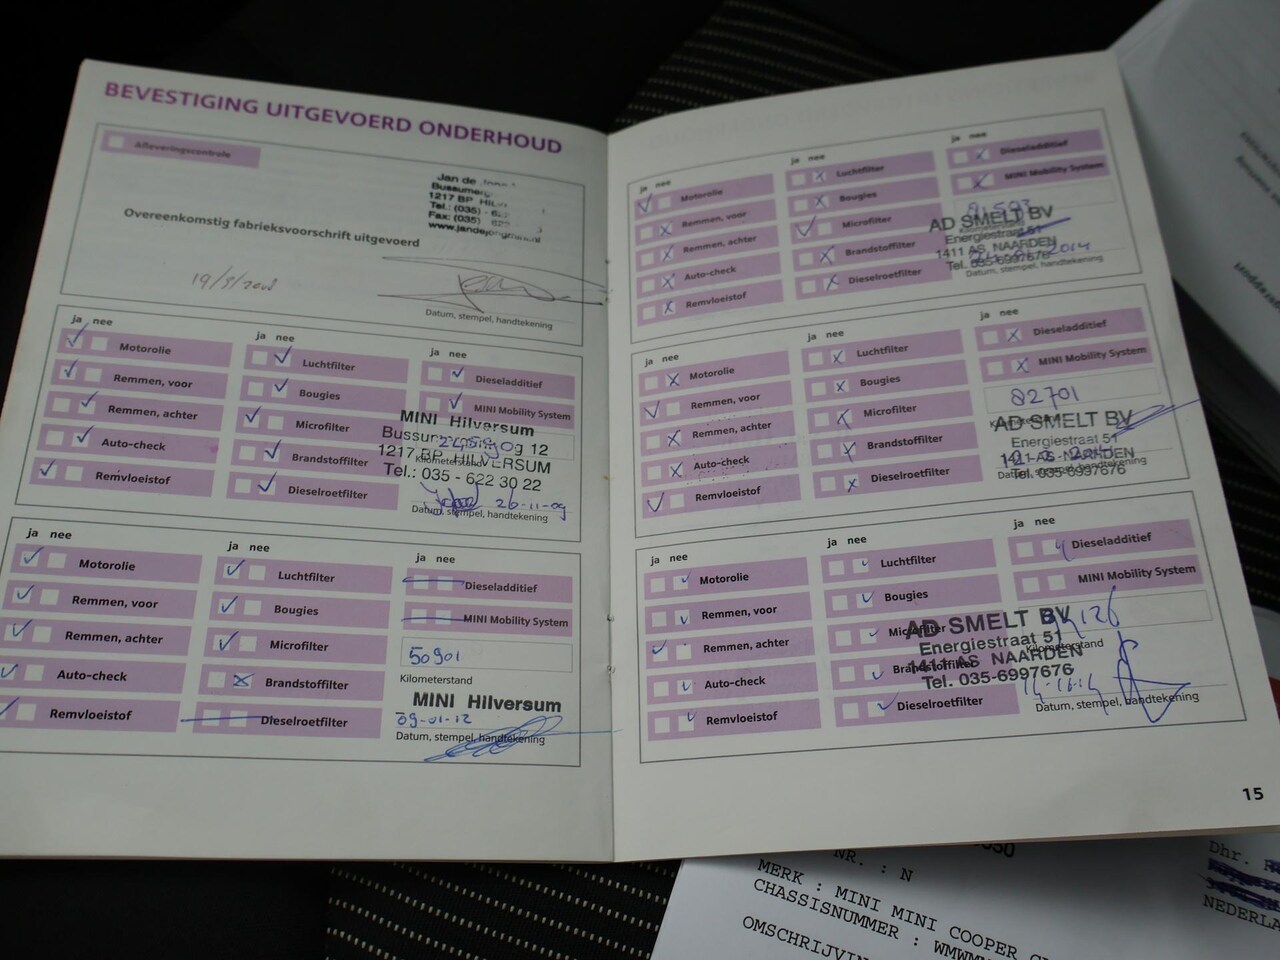 BEVESTIGING UITGEVOERD ONDERHOUD
Afleveringscontrole
Jan de
1217 BP
Tel.: (035) -
Fax: (035)
Overeenkomstig fabrieksvoorschrift uitgevoerd
Datum, stempel, handtekening
ja nee
Motorolie
Remmen, voor
Remmen, achter
Auto-check
Remvloeistof
ja nee
Luchtfilter
Bougies
Microfilter
Brandstoffilter
Dieselroetfilter
ja nee
Dieseladditief
MINI Mobility System
MINI Hilversum
12
1217 BP HILVERSUM
Tel.: 035 - 622 30 22
Kilometerstand
26-11-09
Datum, stempel, handtekening
ja nee
Motorolie
Remmen, voor
Remmen, achter
Auto-check
Remvloeistof
ja nee
Luchtfilter
Bougies
Microfilter
Brandstoffilter
Dieselroetfilter
ja nee
Dieseladditief
MINI Mobility System
50901
Kilometerstand
MINI Hilversum
09-01-12
Datum, stempel, handtekening
ja nee
Motorolie
Remmen, voor
Remmen, achter
Auto-check
Remvloeistof
ja nee
Luchtfilter
Bougies
Microfilter
Brandstoffilter
Dieselroetfilter
ja nee
Dieseladditief
MINI Mobility System
AD SMELT BV
Energiestraat 51
1411 AS NAARDEN
Tel. 035-6997676
Datum, stempel, handtekening
ja nee
Motorolie
Remmen, voor
Remmen, achter
Auto-check
Remvloeistof
ja nee
Luchtfilter
Bougies
Microfilter
Brandstoffilter
Dieselroetfilter
ja nee
Dieseladditief
MINI Mobility System
82701
AD SMELT BV
Energiestraat 51
1411 AS NAARDEN
Tel. 035-6997676
ja nee
Motorolie
Remmen, voor
Remmen, achter
Auto-check
Remvloeistof
ja nee
Luchtfilter
Bougies
Microfilter
Brandstoffilter
Dieselroetfilter
ja nee
Dieseladditief
MINI Mobility System
Kilometerstand
AD SMELT BV
Energiestraat 51
1411 AS NAARDEN
Tel. 035-6997676
Datum, stempel, handtekening
15
NR. : N
MERK : MINI MINI COOPER
CHASSISNUMMER :
Dhr.